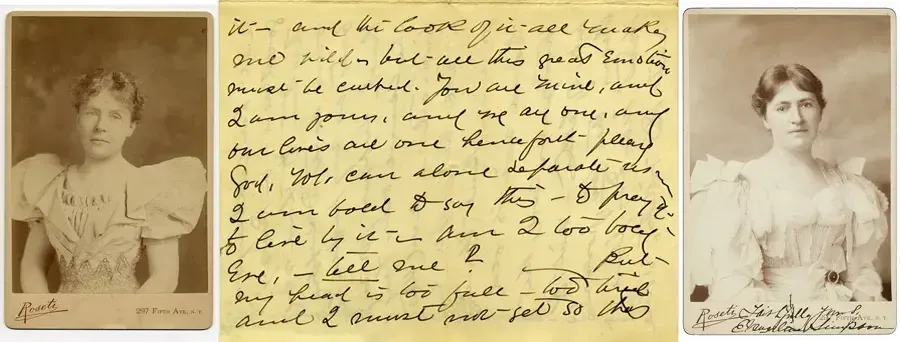 Roseti
297 FIFTH AVE, N.Y.
it – and the look of it all makes
me wild – but all this great Emotion
must be curbed. You are mine, and
I am yours, and we are one, and
our lives are one henceforth please
God, who can alone separate us
I am bold to say this – to pray it
to live by it – Am I too bold,
Eve, – tell me? – But
my head is too full – too
and I must not get so
Roseti
FIFTH AVE, N.Y.
Faithfully Yours
Evangeline Simpson